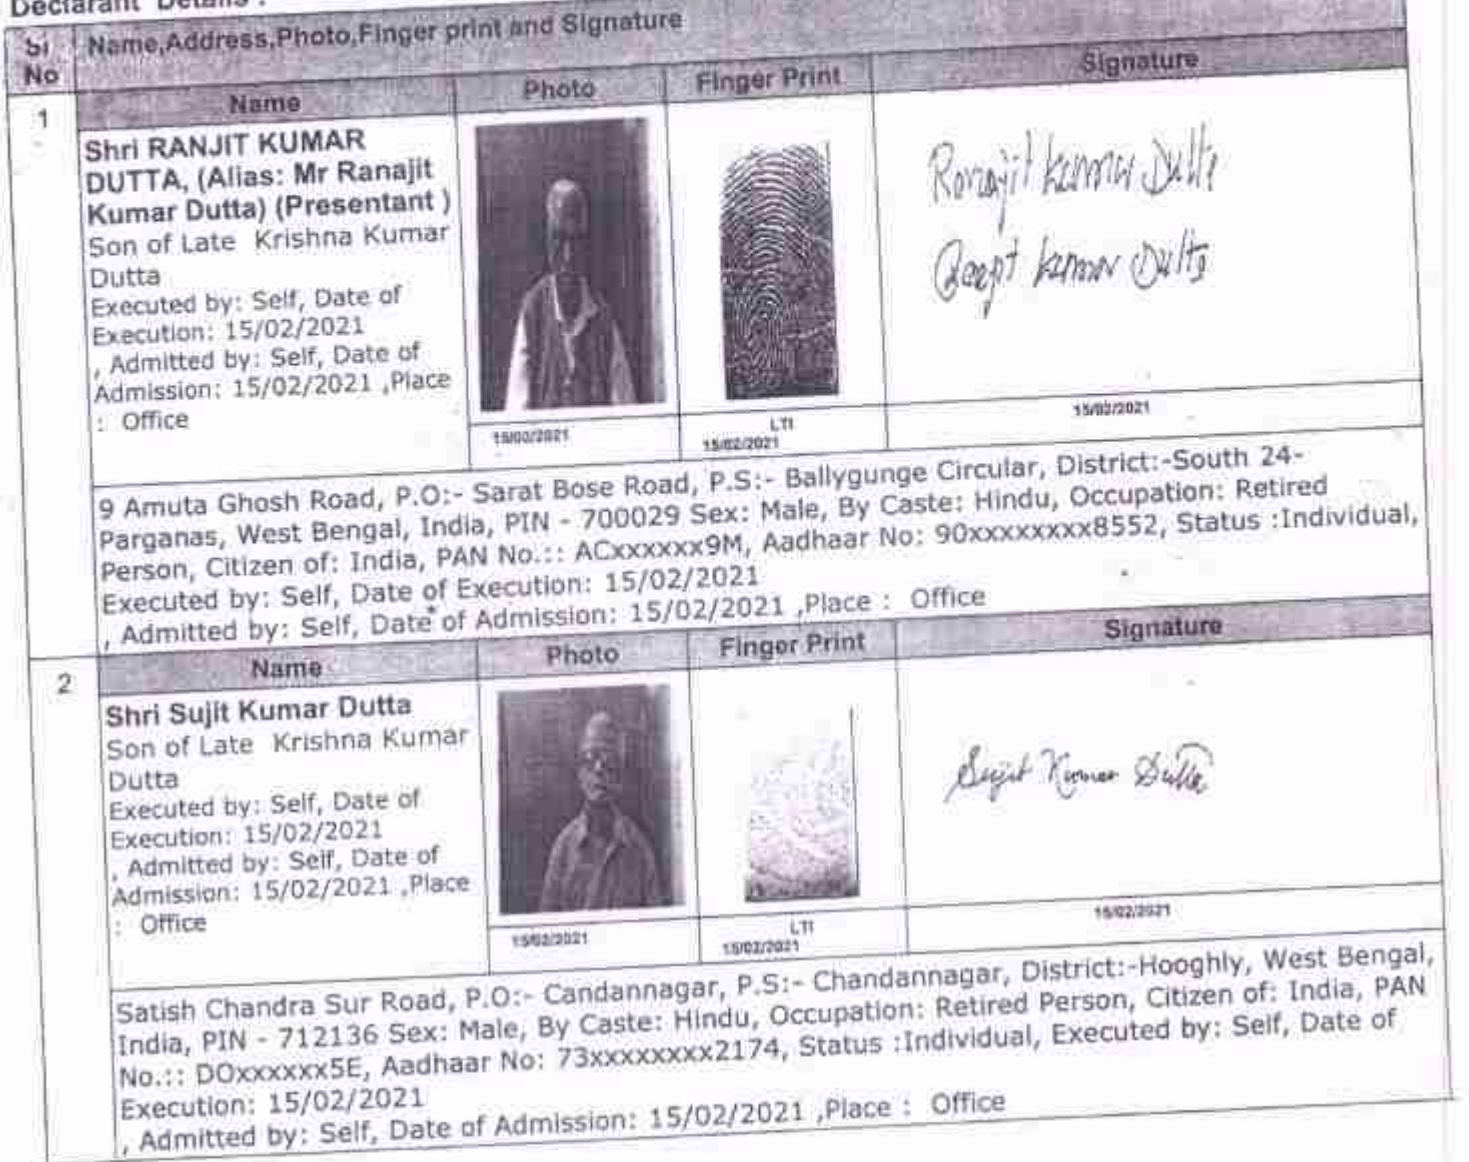 Declarant Details :
Sl No
Name,Address,Photo,Finger print and Signature
Name
Photo
Finger Print
Signature
1
Shri RANJIT KUMAR
DUTTA, (Alias: Mr Ranajit
Kumar Dutta) (Presentant )
Son of Late Krishna Kumar
Dutta
Executed by: Self, Date of
Execution: 15/02/2021
, Admitted by: Self, Date of
Admission: 15/02/2021 ,Place
: Office
Ranajit Kumar Dutta
Kumar Dutta
15/02/2021
LTI
15/02/2021
15/02/2021
9 Amuta Ghosh Road, P.O:- Sarat Bose Road, P.S:- Ballygunge Circular, District:-South 24-
Parganas, West Bengal, India, PIN - 700029 Sex: Male, By Caste: Hindu, Occupation: Retired
Person, Citizen of: India, PAN No.:: ACxxxxxx9M, Aadhaar No: 90xxxxxxxx8552, Status :Individual,
Executed by: Self, Date of Execution: 15/02/2021
, Admitted by: Self, Date of Admission: 15/02/2021 ,Place : Office
Name
Photo
Finger Print
Signature
2
Shri Sujit Kumar Dutta
Son of Late Krishna Kumar
Dutta
Executed by: Self, Date of
Execution: 15/02/2021
, Admitted by: Self, Date of
Admission: 15/02/2021 ,Place
: Office
Sujit Kumar Dutta
15/02/2021
LTI
15/02/2021
15/02/2021
Satish Chandra Sur Road, P.O:- Candannagar, P.S:- Chandannagar, District:-Hooghly, West Bengal,
India, PIN - 712136 Sex: Male, By Caste: Hindu, Occupation: Retired Person, Citizen of: India, PAN
No.:: DOxxxxxx5E, Aadhaar No: 73xxxxxxxx2174, Status :Individual, Executed by: Self, Date of
Execution: 15/02/2021
, Admitted by: Self, Date of Admission: 15/02/2021 ,Place : Office